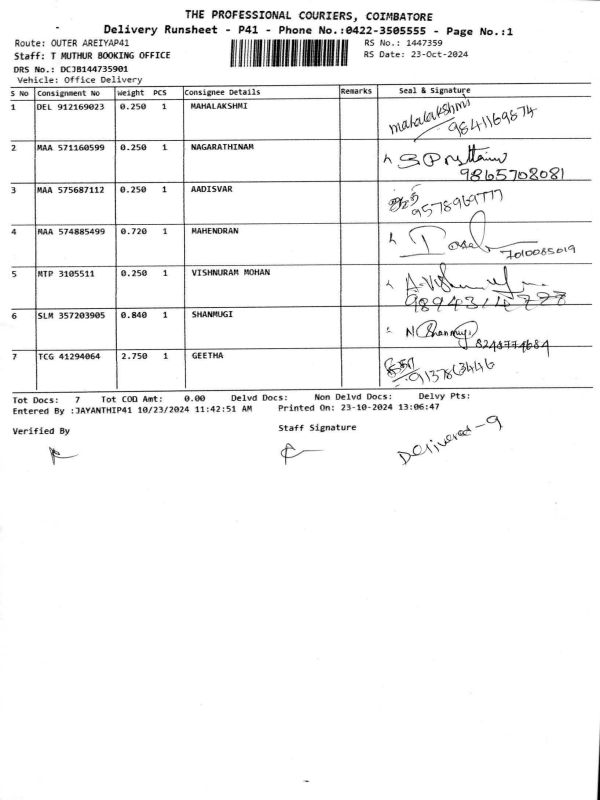 THE PROFESSIONAL COURIERS, COIMBATORE
Delivery Runsheet - P41 - Phone No.:0422-3505555 - Page No.:1
Route: OUTER AREIYAP41 RS No.: 1447359
Staff: T MUTHUR BOOKING OFFICE RS Date: 23-Oct-2024
DRS No.: DCJB144735901
Vehicle: Office Delivery
S No Consignment No Weight PCS Consignee Details Remarks Seal & Signature
1 DEL 912169023 0.250 1 MAHALAKSHMI mahalakshmi
9841169874
2 MAA 571160599 0.250 1 NAGARATHINAM
9865708081
3 MAA 575687112 0.250 1 AADISVAR
9578969777
4 MAA 574885499 0.720 1 MAHENDRAN
7010085019
5 MTP 3105511 0.250 1 VISHNURAM MOHAN
6 SLM 357203905 0.840 1 SHANMUGI N Shanmugi
8248774684
7 TCG 41294064 2.750 1 GEETHA
9137863446
Tot Docs: 7 Tot COD Amt: 0.00 Delvd Docs: Non Delvd Docs: Delvy Pts:
Entered By :JAYANTHIP41 10/23/2024 11:42:51 AM Printed On: 23-10-2024 13:06:47
Verified By Staff Signature Delivered - 9